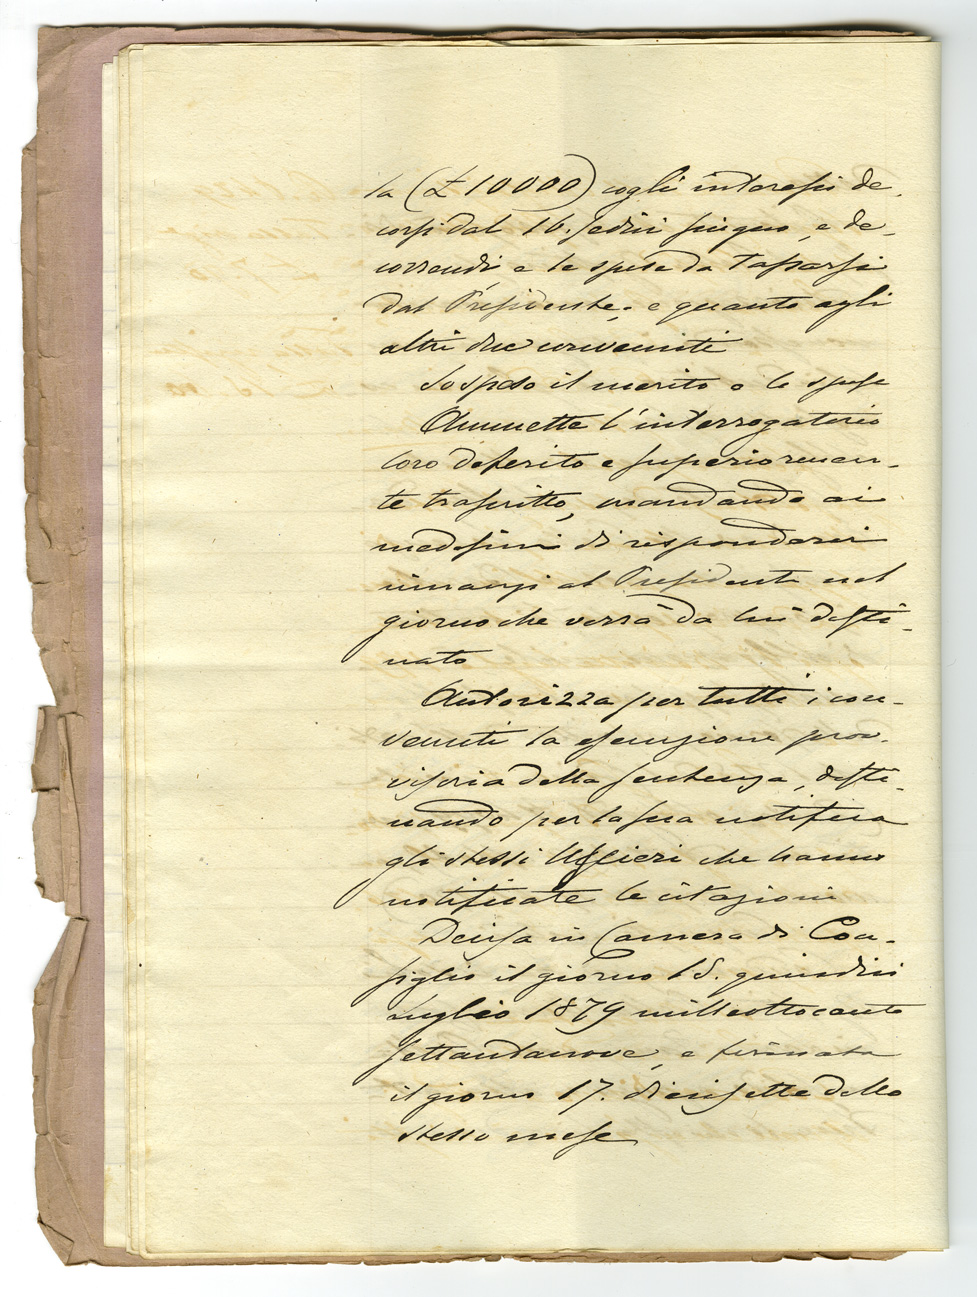 la (£ 10000) cogli interessi de-
corsi dal 16. sedici giugno, e de-
correndi, e le spese da tassarsi
dal Presidente; e quanto agli
altri due convenuti
Sospeso il merito e le spese
Ammette l'interrogatorio
loro deferito e superiormen-
te trascritto, mandando ai
medesimi di rispondervi
innanzi al Presidente nel
giorno che verrà da lui desti-
nato
Autorizza per tutti i con-
venuti la esecuzione prov-
visoria della sentenza, desti-
nando per la sua notifica
gli stessi Uscieri che hanno
notificate le citazioni
Decisa in Camera di Con-
siglio il giorno 15. quindici
luglio 1879 milleottocento
settantanove, e firmata
il giorno 17. diecisette dello
stesso mese